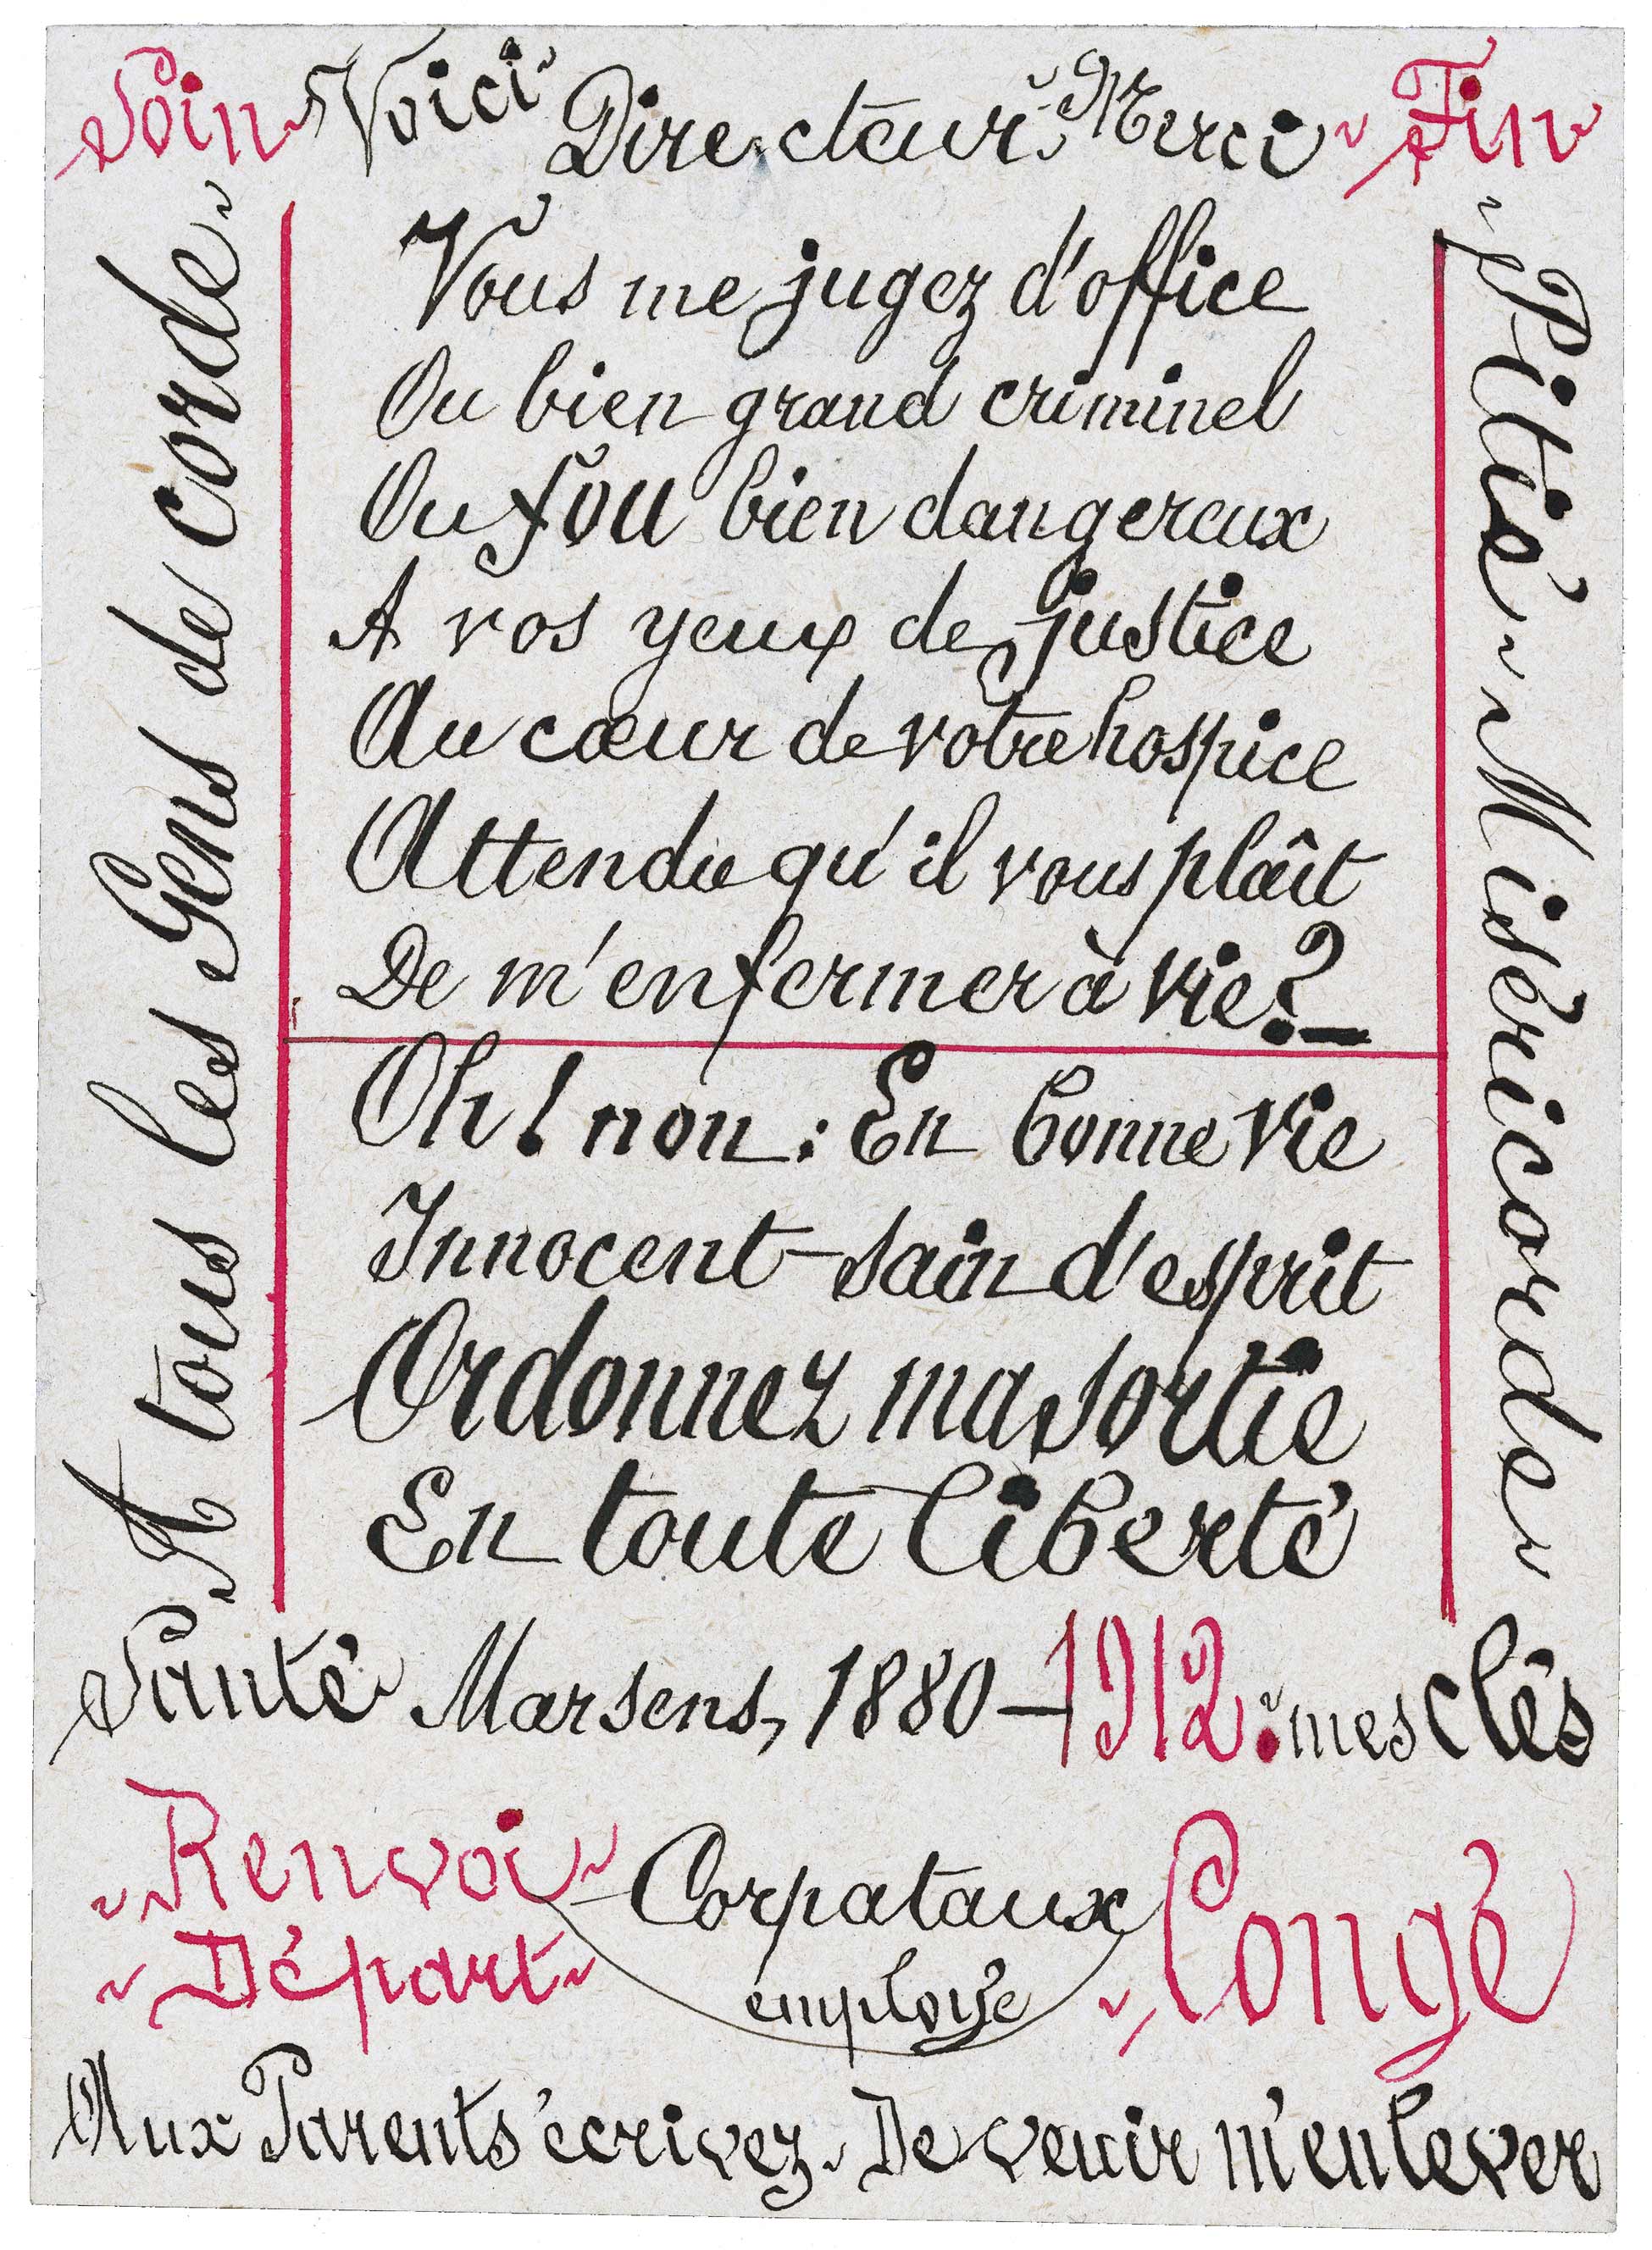 Soin Voici Directeur Merci Fin
A tous les Gens de corde
Vous me jugez d'office
Ou bien grand criminel
Ou fou bien dangereux
A vos yeux de justice
Au cœur de votre hospice
Attendu qu'il vous plaît
De m'enfermer à vie?
Oh! non: En bonne vie
Innocent-sain d'esprit
Ordonnez ma sortie
En toute liberté
Pitié Miséricorde
Santé Marsens, 1880-1912: mes clés
Renvoi Corpataux Congé
Départ employé
Aux Parents écrivez. De venir m'enlever